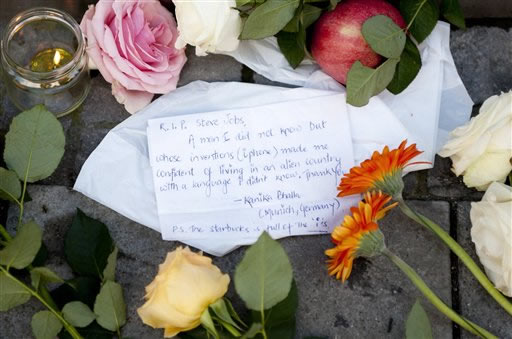 R.I.P. Steve Jobs
A man I did not know but
whose inventions (iphone) made me
confident of living in an alien country
with a language i didnt know, Thank you
- Kanika Bhatia
(Munich, Germany)
P.S. The Starbucks is full of the 'i's